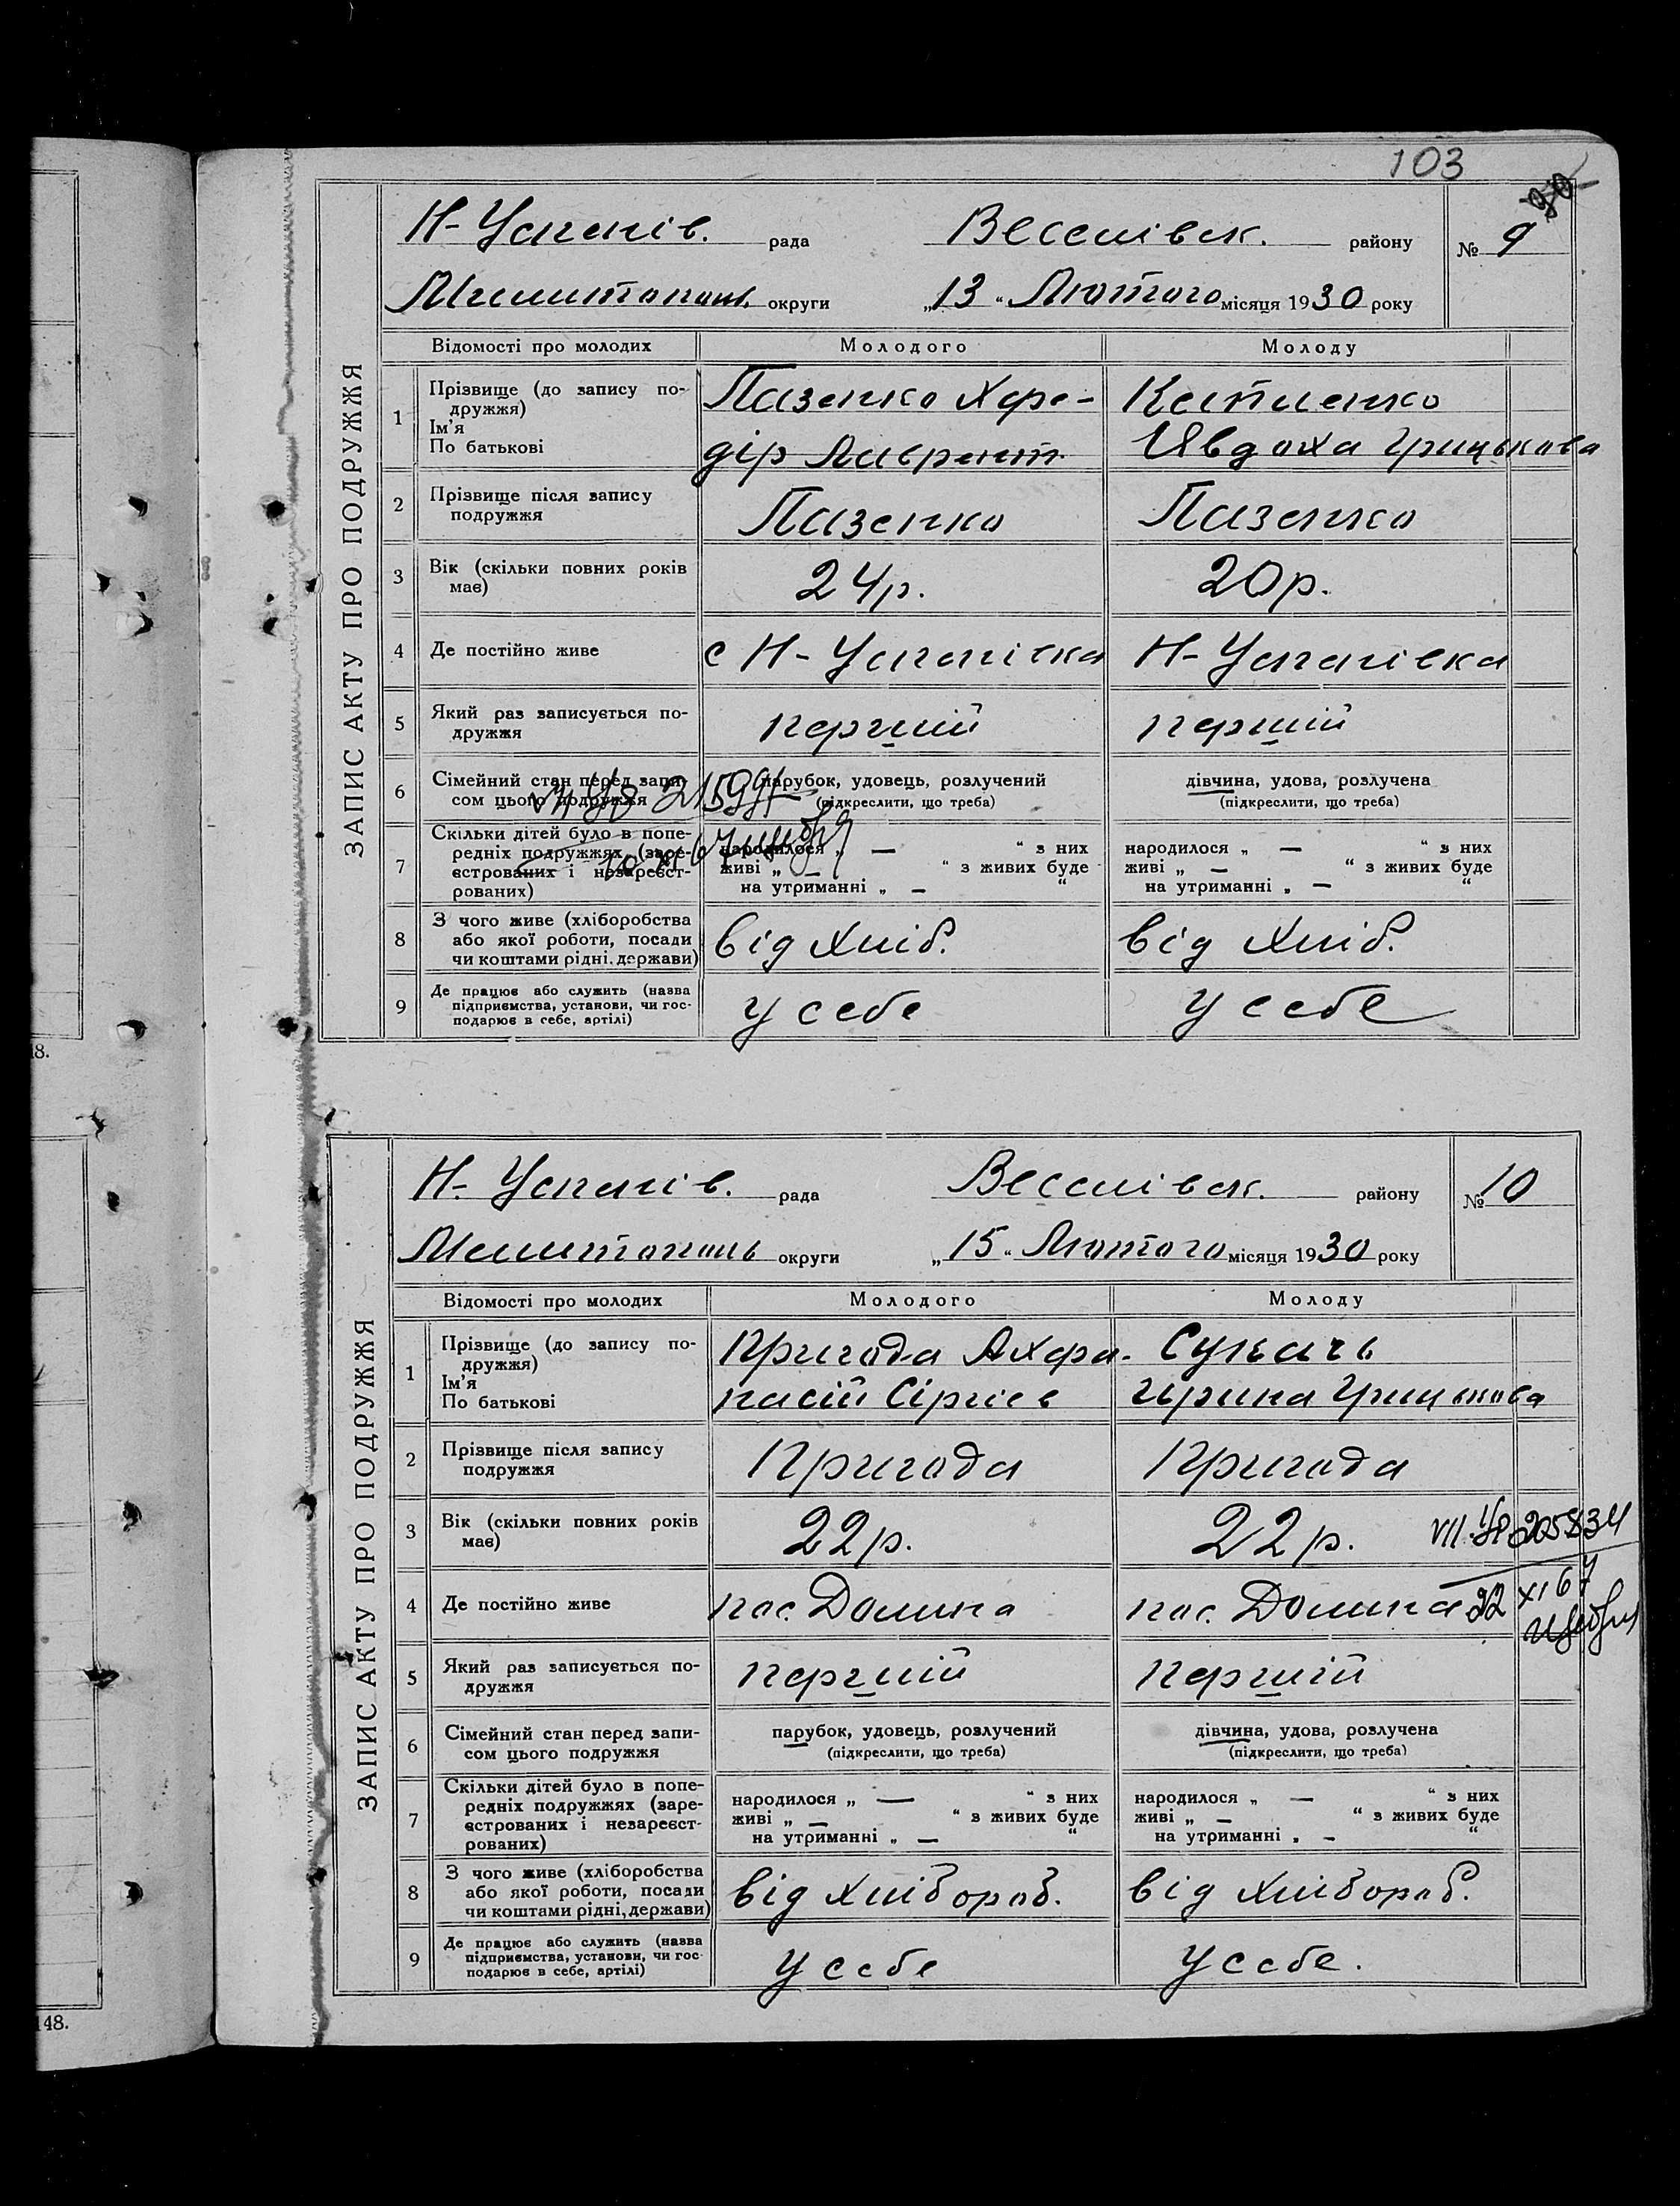 103
Н-Успенів. рада Веселівск. району № 9
Мелитопольс. округи „13“ Лютого місяця 1930 року
ЗАПИС АКТУ ПРО ПОДРУЖЖЯ
Відомості про молодих Молодого Молоду
1 Прізвище (до запису по-
дружжя)
Ім'я
По батькові
Пазенко Хфе-
дір Лаврент.
Явдоха Грицькова
2 Прізвище після запису
подружжя
Пазенко Пазенко
3 Вік (скільки повних років
має)
24р. 20р.
4 Де постійно живе с Н-Успенівка Н-Успенівка
5 Який раз записується по-
дружжя
перший перший
6 Сімейний стан перед запи-
сом цього подружжя
парубок, удовець, розлучений
(підкреслити, що треба)
дівчина, удова, розлучена
(підкреслити, що треба)
7 Скільки дітей було в попе-
редніх подружжях (заре-
єстрованих і незареєст-
рованих)
народилося „ — “ з них
живі „ — “ з живих буде
на утриманні „ — “
народилося „ — “ з них
живі „ — “ з живих буде
на утриманні „ — “
8 З чого живе (хліборобства
або якої роботи, посади
чи коштами рідні, держави)
від хліб. від хліб.
9 Де працює або служить (назва
підприємства, установи, чи гос-
подарює в себе, артілі)
у себе у себе
18.
Н-Успенів. рада Веселівск. району № 10
Мелитополь округи „15“ Лютого місяця 1930 року
ЗАПИС АКТУ ПРО ПОДРУЖЖЯ
Відомості про молодих Молодого Молоду
1 Прізвище (до запису по-
дружжя)
Ім'я
По батькові
Пригода Ахфа-
насій Сіргієв
Ирина Грицькова
2 Прізвище після запису
подружжя
Пригода Пригода
3 Вік (скільки повних років
має)
22р. 22р.
4 Де постійно живе пос. Долина пос. Долина
22 XI 67
5 Який раз записується по-
дружжя
перший перший
6 Сімейний стан перед запи-
сом цього подружжя
парубок, удовець, розлучений
(підкреслити, що треба)
дівчина, удова, розлучена
(підкреслити, що треба)
7 Скільки дітей було в попе-
редніх подружжях (заре-
єстрованих і незареєст-
рованих)
народилося „ — “ з них
живі „ — “ з живих буде
на утриманні „ — “
народилося „ — “ з них
живі „ — “ з живих буде
на утриманні „ — “
8 З чого живе (хліборобства
або якої роботи, посади
чи коштами рідні, держави)
від хлібороб. від хлібороб.
9 Де працює або служить (назва
підприємства, установи, чи гос-
подарює в себе, артілі)
у себе у себе.
148.